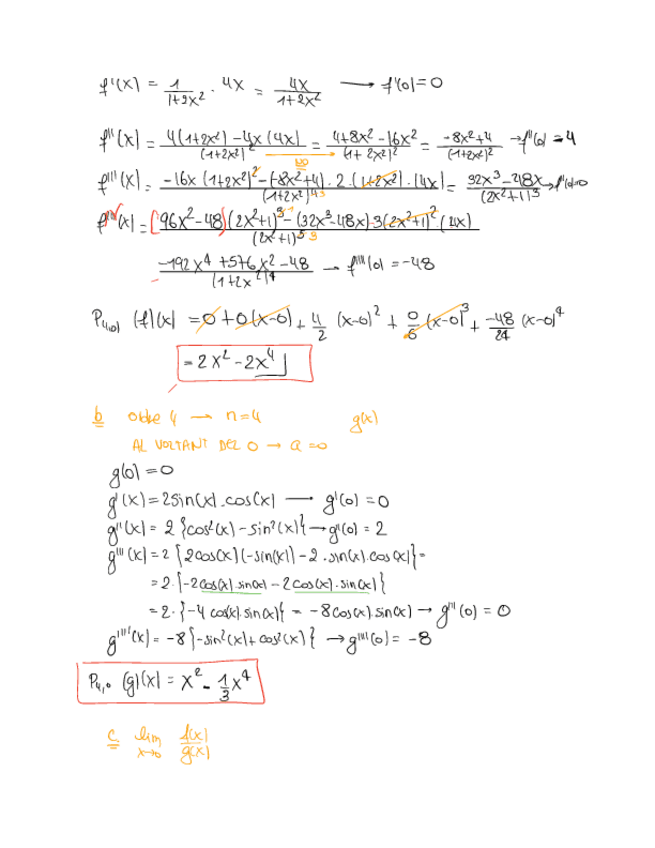 f'(x) = 1/(1+2x²) · 4x = 4x/(1+2x²) → f'(0) = 0
f''(x) = (4(1+2x²) - 4x(4x))/(1+2x²)² = (4+8x²-16x²)/(1+2x²)² = (-8x²+4)/(1+2x²)² → f''(0) = 4
f'''(x) = (-16x(1+2x²)² - (-8x²+4)·2·(1+2x²)·(4x))/(1+2x²)⁴ ³ = (32x³-48x)/(2x²+1)³ → f'''(0)=0
f''''(x) = ((96x²-48)(2x²+1)³ - (32x³-48x)·3(2x²+1)²·(4x))/(2x²+1)
(-192x⁴+576x²-48)/(1+2x²)⁴ → f''''(0) = -48
P₄,₀ (f)(x) = 0 + 0(x-0) + 4/2 (x-0)² + 0/6 (x-0)³ + -48/24 (x-0)⁴
= 2x² - 2x⁴
b ordre 4 → n=4 g(x)
AL VOLTANT DEL 0 → a=0
g(0) = 0
g'(x) = 2sin(x)·cos(x) → g'(0) = 0
g''(x) = 2{cos²(x) - sin²(x)} → g''(0) = 2
g'''(x) = 2{2cos(x)(-sin(x)) - 2·sin(x)·cos(x)} =
= 2·{-2cos(x)·sin(x) - 2cos(x)·sin(x)}
= 2·{-4 cos(x)·sin(x)} = -8cos(x)·sin(x) → g'''(0) = 0
g''''(x) = -8{-sin²(x)+cos²(x)} → g''''(0) = -8
P₄,₀ (g)(x) = x² - 1/3 x⁴
c lim x→0 f(x)/g(x)